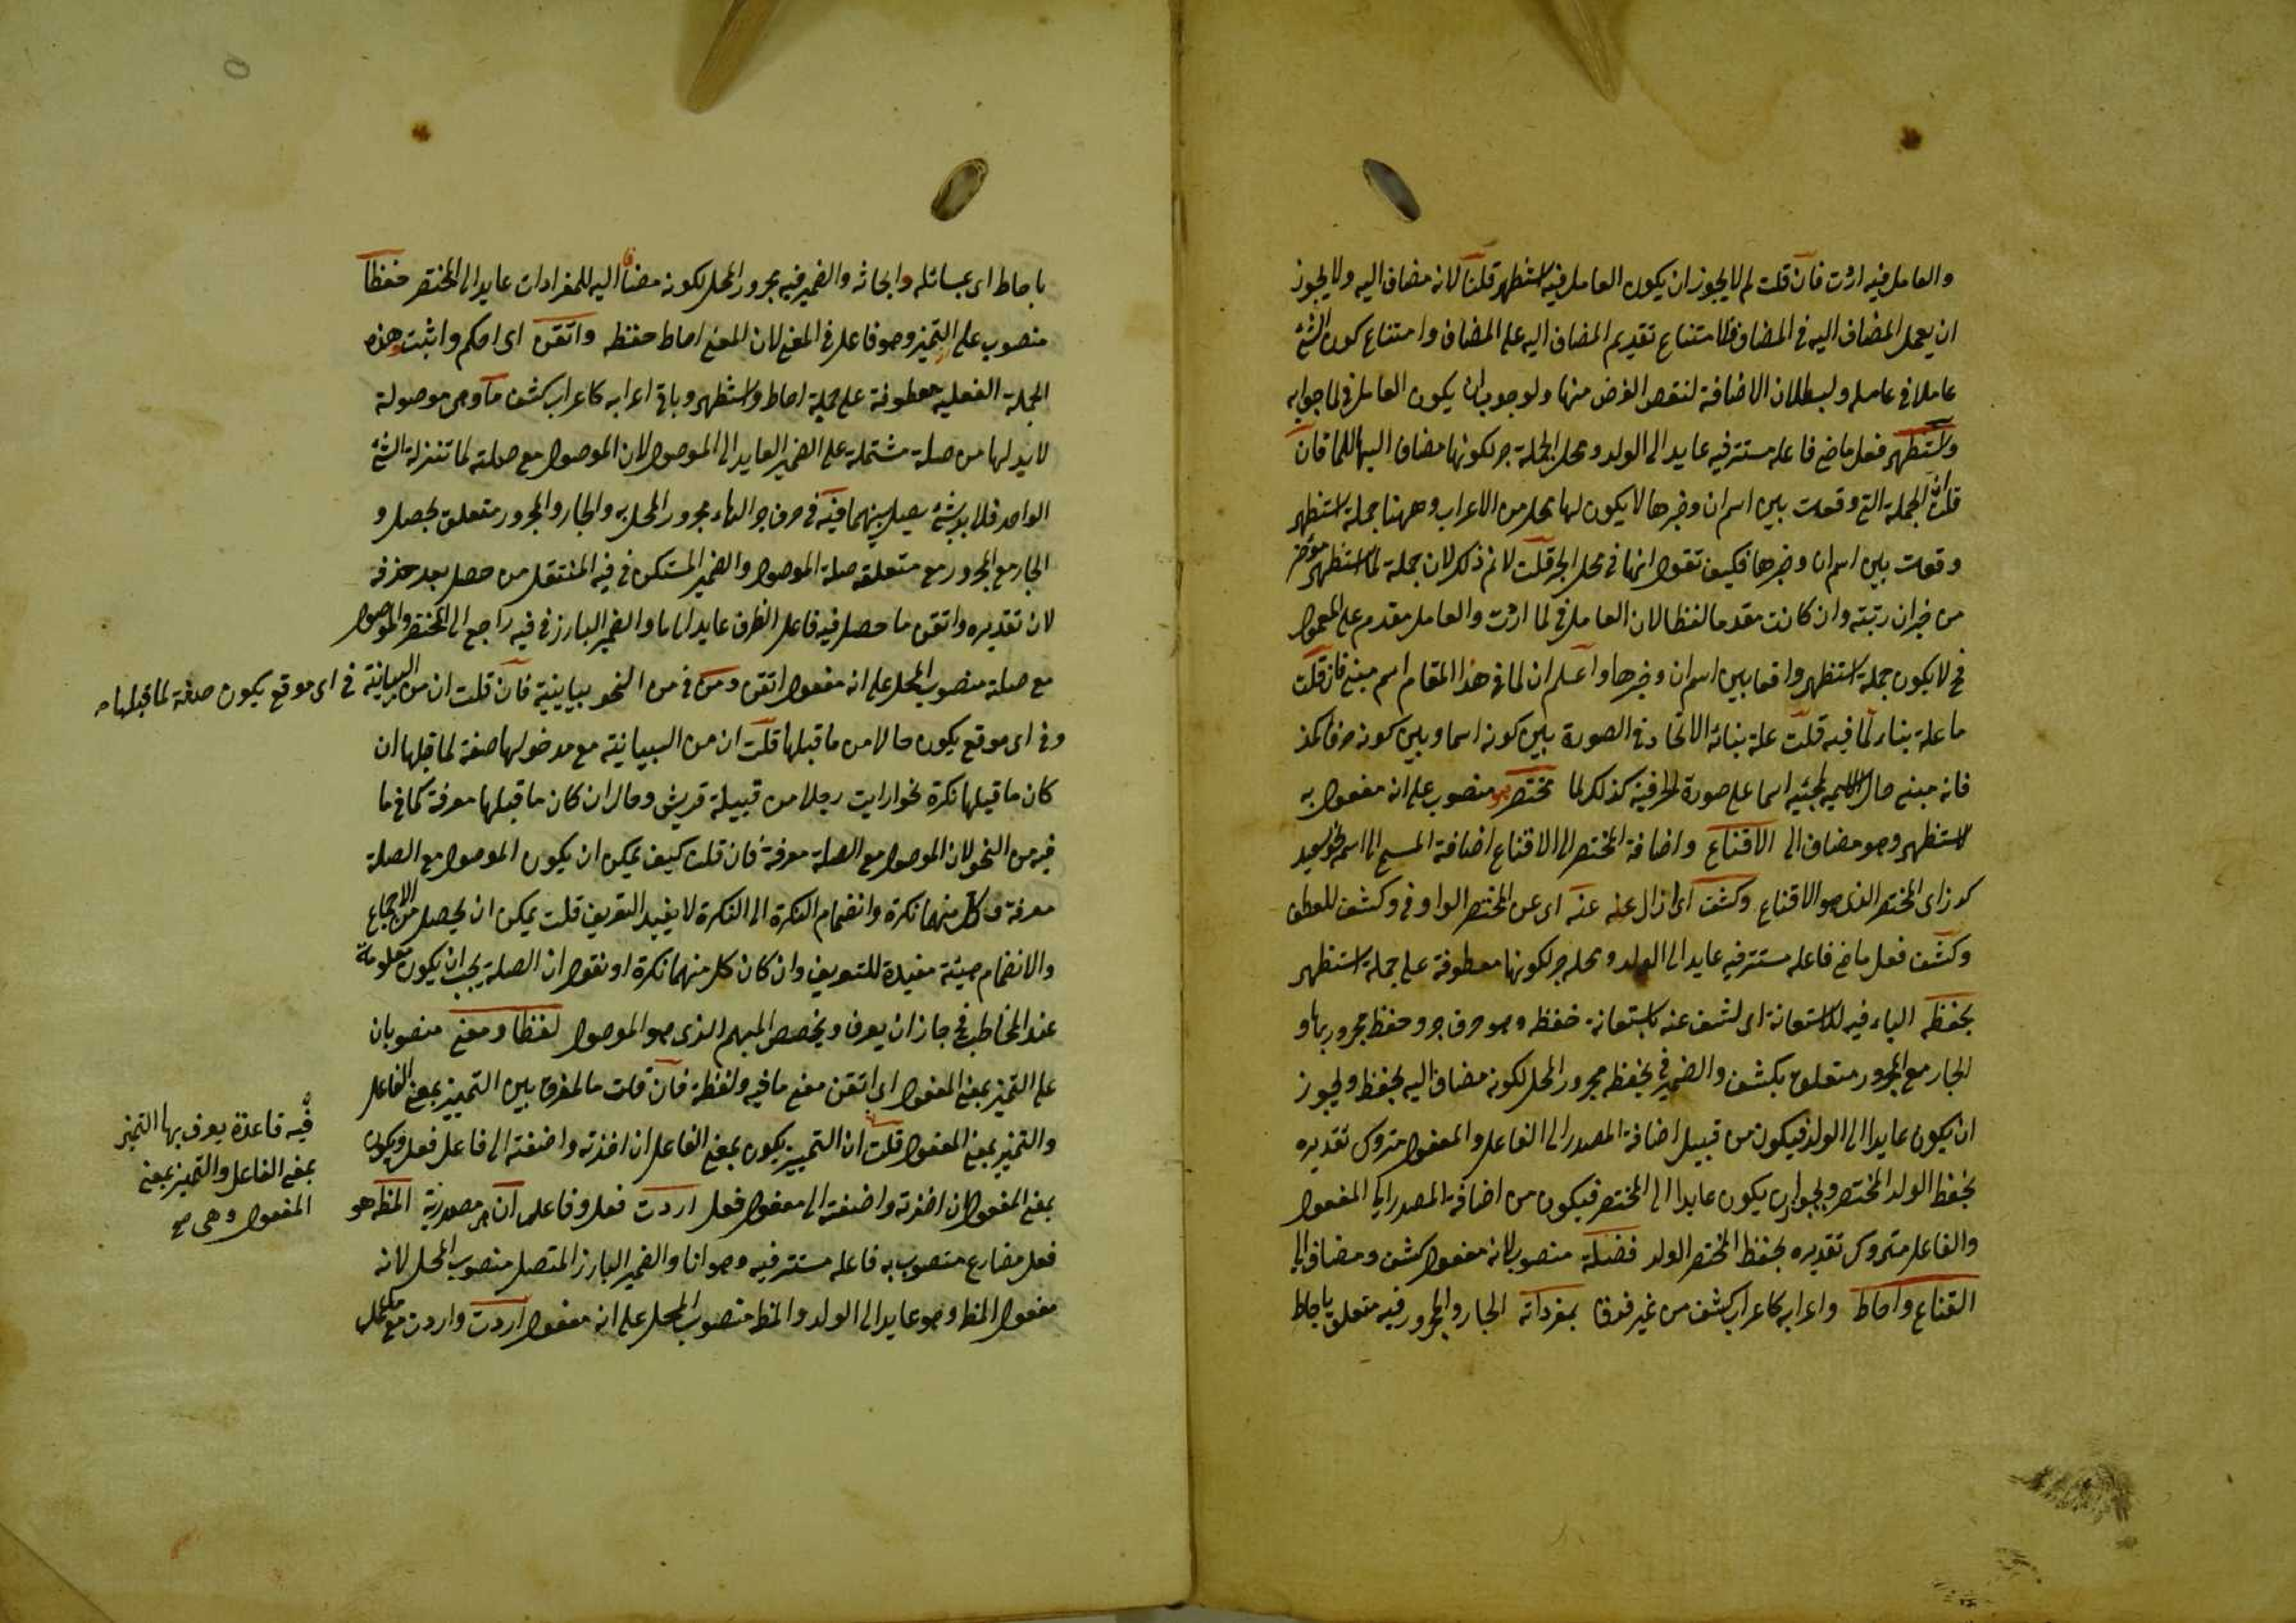 والعامل فيه اردت فان قلت لم لا يجوز ان يكون العامل فيه استظهر قلنا لانه مضاف اليه ولا يجوز
ان يعمل المضاف اليه في المضاف لامتناع تقديم المضاف اليه على المضاف وامتناع كون الشئ
عاملا في عامله ولبطلان الاضافة لنقص الغرض منها ولوجوب ان يكون العامل في لما جوابه
واستظهر فعل ماض فاعله مستتر فيه عايد الى الولد ومحل الجملة جر لكونها مضافا اليها للما فان
قلت ان الجملة التي وقعت بين اسم ان وخبرها لا يكون لها محل من الاعراب وههنا جملة استظهر
وقعت بين اسم ان وخبرها فكيف تقول انها في محل الجر قلت لا نم ذلك لان جملة لما استظهر مؤخر
من خبر ان رتبته وان كانت مقدما لفظا لان العامل في لما اردت والعامل مقدم على المعمول
فح لا يكون جملة استظهر واقعا بين اسم ان وخبرها واعلم ان لما في هذا المقام اسم مبني فان قلت
ما علة بناء لما فيه قلت علة بنائه الاتحاد في الصورة بين كونه اسما وبين كونه حرفا كمذ
فانه مبني حال الاسمية لمجئيه اسما على صورة الحرفية كذلك لما مختصر منصوب على انه مفعول به
لاستظهر وهو مضاف الى الاقناع واضافة المختصر الى الاقناع اضافة المسمى الى اسم نحو سعيد
كرز اى المختصر الذى هو الاقناع وكشف اى ازال عنه عنه اى عن المختصر الواو في وكشف للعطف
وكشف فعل ماض فاعله مستتر فيه عايد الى الولد ومحله جر لكونها معطوفة على جملة استظهر
بحفظه الباء فيه للاستعانة اى لشف عنه باستعانة حفظه وهو حرف جر وحفظ مجرور بها و
الجار مع المجرور متعلق بكشف والضمير في بحفظه مجرور المحل لكونه مضاف اليه لحفظ ويجوز
ان يكون عايدا الى الولد فيكون من قبيل اضافة المصدر الى الفاعل والمفعول متروك تقديره
بحفظ الولد المختصر ويجوز ان يكون عايدا الى المختصر فيكون من اضافة المصدر الى المفعول
والفاعل متروك تقديره بحفظ المختصر الولد فضلة منصوب لانه مفعول كشف ومضاف الى
القناع واحاط واعرابه كاعراب كشف من غير فرق بمفرداته الجار والمجرور فيه متعلق باحاط
باحاط اى بمسائله وابحاثه والضمير فيه مجرور المحل لكونه مضافا اليه للمفردات عايد الى المختصر حفظا
منصوب على التميز وهو فاعل في المعنى لان المعنى احاط حفظه واتقن اى احكم واثبت وهذه
الجملة الفعلية معطوفة على جملة احاط واستظهر وباقي اعرابه كاعراب كشف ما وهي موصولة
لا بد لها من صلة مشتملة على الضمير العايد الى الموصول لان الموصول مع صلته لما تنزلة الشئ
الواحد فلا بد شئ يصل بينهما فيه في حرف جر الهاء مجرور المحل به والجار والمجرور متعلق بحصل و
الجار مع المجرور مع متعلقه صلة الموصول والضمير المستكن في فيه المنتقل من حصل بعد حذفه
لان تقديره واتقن ما حصل فيه فاعل الظرف عايد الى ما والضمير البارز في فيه راجع الى المختصر والموصول
مع صلة منصوب المحل على انه مفعول اتقن ومن في من النحو بيانية فان قلت ان من البيانية في اى موقع يكون صفة لما قبلها
وفي اى موقع يكون حالا من ما قبلها قلت ان من البيانية مع مدخولها صفة لما قبلها ان
كان ما قبلها نكرة نحو رايت رجلا من قبيلة قريش وحال ان كان ما قبلها معرفة كما في ما
فيه من النحو لان الموصول مع الصلة معرفة فان قلت كيف يمكن ان يكون الموصول مع الصلة
معرفة وكل منهما نكرة وانضمام النكرة الى النكرة لا يفيد التعريف قلت يمكن ان يحصل من الاجماع
والانضمام هيئة مفيدة للتعريف وان كان كل منهما نكرة او نقول ان الصلة يجب ان يكون معلومة
عند المخاطب فح جاز ان يعرف ويخصص المبهم الذى هو الموصول لفظا ومعنى منصوبان
على التميز بمعنى المفعول اى اتقن معنى ما فيه ولفظه فان قلت ما الفرق بين التمييز بمعنى الفاعل
والتميز بمعنى المفعول قلت ان التمييز يكون بمعنى الفاعل ان اخذته واضفته الى فاعل فعل ويكون
بمعنى المفعول ان اخذته واضفته الى مفعول فعل اردت فعل وفاعل ان مصدرية المظه هو
فعل مضارع منصوب به فاعله مستتر فيه وهو انا والضمير البارز المتصل منصوب المحل لانه
مفعول المظ وهو عايد الى الولد والمظ منصوب المحل على انه مفعول اردت واردت مع
فيه قاعدة يعرف بها التميز
بمعنى الفاعل والتميز بمعنى
المفعول وهى